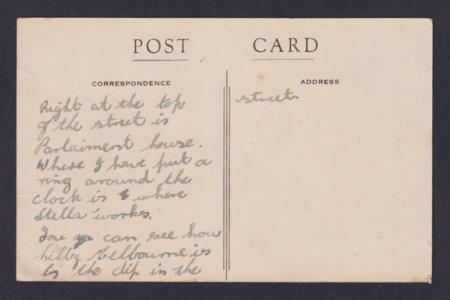 POST CARD
CORRESPONDENCE
ADDRESS
Right at the top
of the street is
Parlaiment house.
Where I have put a
ring around the
clock is & where
Stella works.
You can see how
hilby Melbourne is
by the dip in the
street.